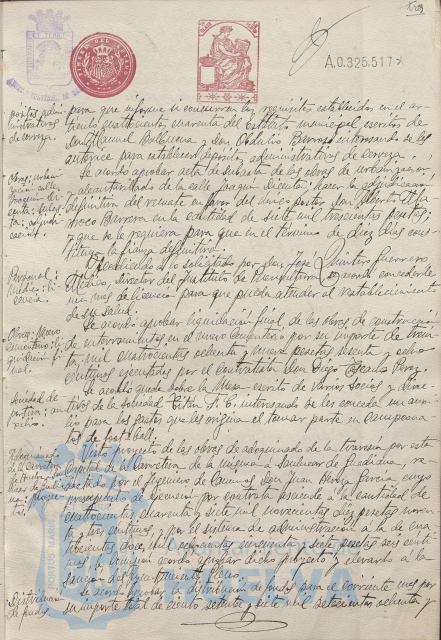 tres
A.0.325.517
para que informe si concurren los requisitos establecidos en el ar-
tículo cuatrocientos cuarenta del Estatuto municipal escritos de
Don Manuel Balbuena y Don Obdulio Barroso interesando se les
autorice para establecer depósitos administrativos de cerveza.
Se acordó aprobar acta de subasta de las obras de urbanización
y alcantarillado de la calle Joaquín Dicenta; hacer la adjudicación
definitiva del remate en favor del único postor Don Alberto
Barrera en la cantidad de siete mil trescientas pesetas;
y que se le requiera para que en el término de diez días cons-
tituya la fianza definitiva.
a lo solicitado por Don José Quintero Guerrero
Médico, Director del Instituto de se acordó concederle
un mes de licencia para que pueda atender al restablecimiento
de su salud.
Se acordó aprobar liquidación final de las obras de construcción
de enterramientos en el nuevo Cementerio por su importe de trein-
ta mil cuatrocientas ochenta y nueve pesetas sesenta y ocho
céntimos ejecutadas por el contratista Don Diego Pérez.
Se acordó quede sobre la Mesa escrito de varios socios y direc-
tivos de la Sociedad Titán F. C. interesando se les conceda un auxi-
lio para los gastos que les origina el tomar parte en Campeona-
tos de foot-ball.
Visto proyecto de las obras de adoquinado de la travesía por esta
Capital de la Carretera de la misma a Sanlúcar de Guadiana, re-
dactado por el Ingeniero de Caminos Don Juan Pérez García cuyo
presupuesto de ejecución por contrata asciende a la cantidad de
cuatrocientas cuarenta y siete mil novecientas diez pesetas noven-
ta y tres céntimos y por el sistema de administración a la de cua-
trocientas doce mil cincuenta y siete pesetas seis cénti-
mos, la Comisión acordó aprobar dicho proyecto y elevarlo a la
sanción del Ayuntamiento Pleno.
Se acordó aprobar la distribución de fondos para el corriente mes por
su importe total de ciento setenta y siete mil setecientas ochenta y
pósitos admi-
nistrativos de
cerveza.
Obras: urbani-
zación calle
Joaquín Di-
centa:
Personal:
Médico: li-
cencia.
Obras: Nuevo
Cementerio: li-
quidación fi-
nal.
Sociedad de-
portiva: au-
xilio.
Distribución
de fondos